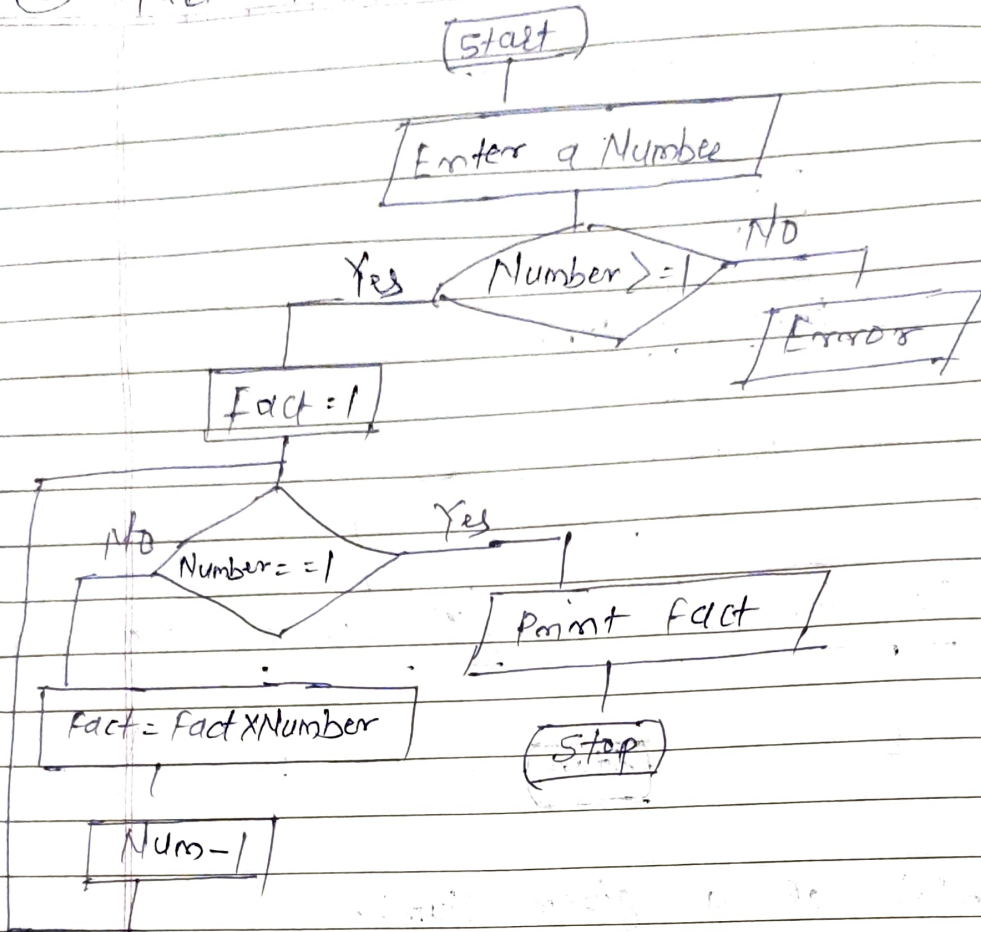 Start
Enter a Number
Number >=1
Yes
NO
Error
Fact = 1
Number = = 1
NO
Yes
Print fact
Fact = fact X Number
Stop
Num-1